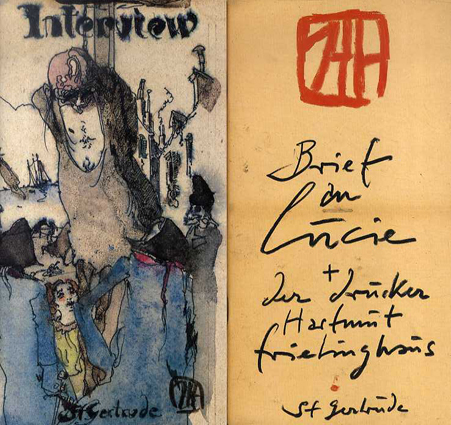 Interview
St Gertrude
Brief
an
Lucie
+
der drucker
Hartmut
frielinghaus
St Gertrude